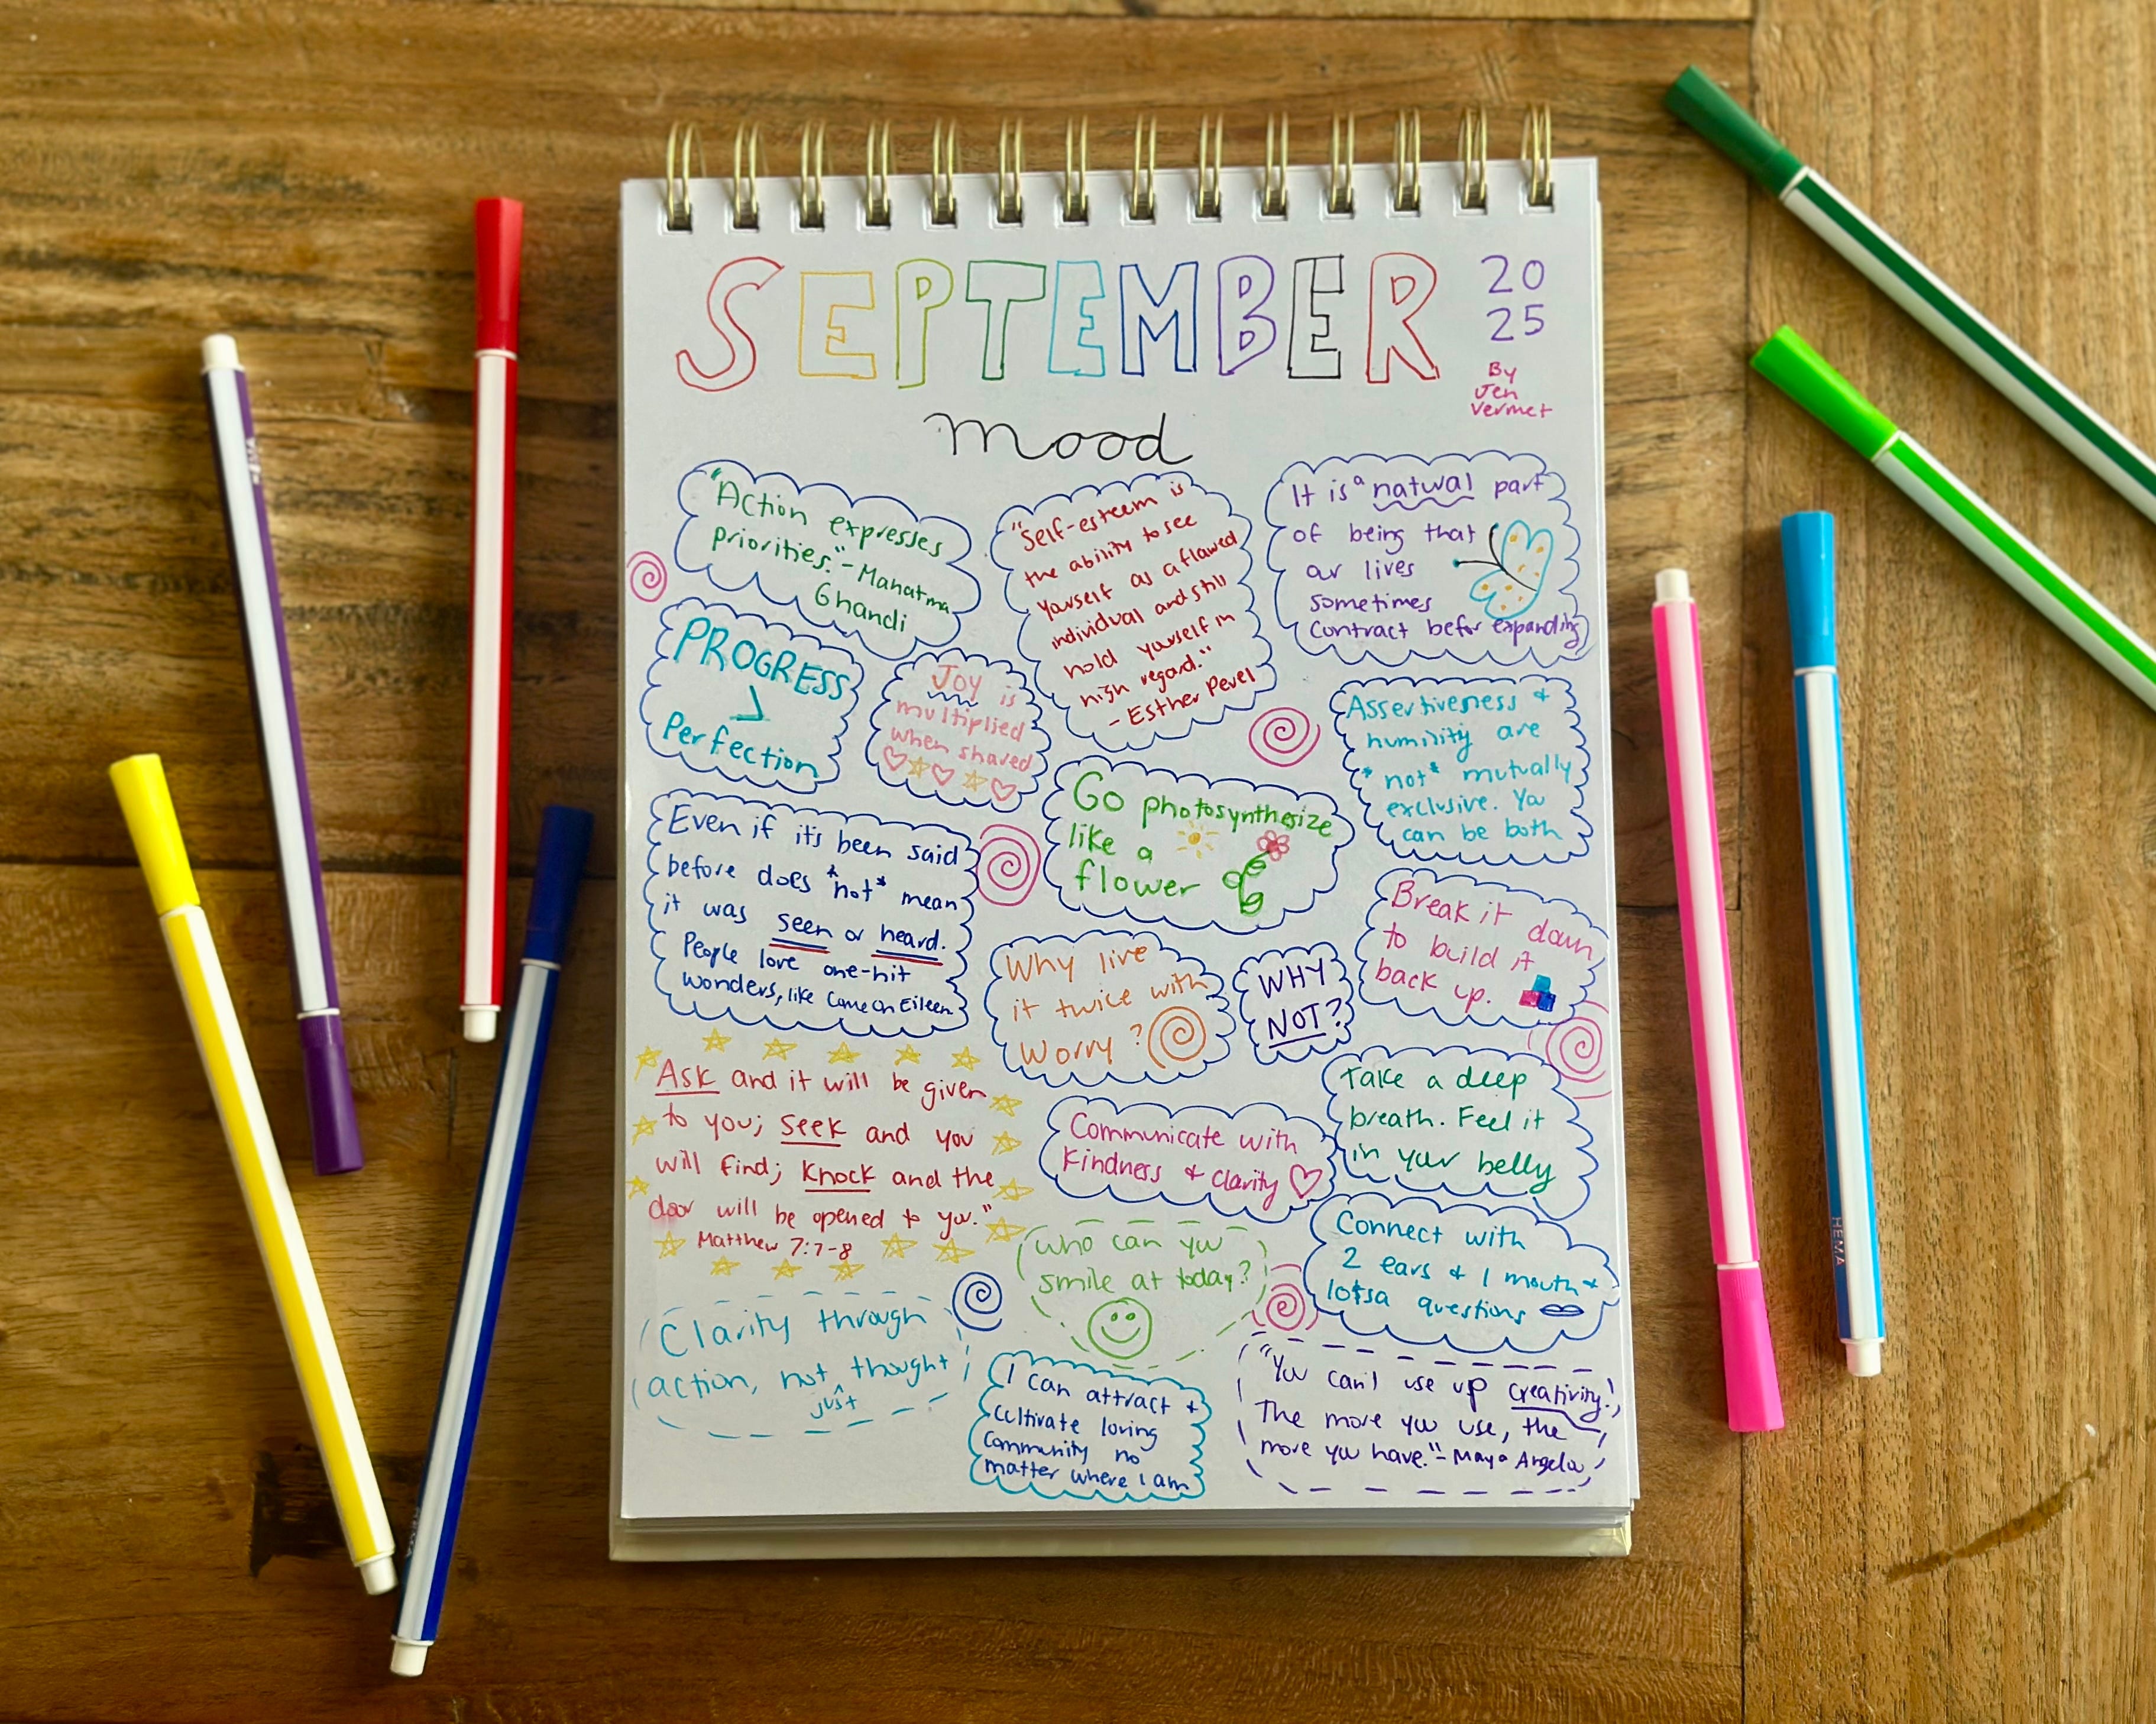 SEPTEMBER
20
25
By
Jen
Vermet
mood
"Action expresses
priorities." - Mahatma
Ghandi
"Self-esteem is
the ability to see
yourself as a flawed
individual and still
hold yourself in
high regard."
- Esther Perel
It is a natural part
of being that
our lives
sometimes
contract before expanding
PROGRESS
>
Perfection
Joy is
multiplied
when shared
Assertiveness +
humility are
*not* mutually
exclusive. You
can be both
Go photosynthesize
like a
flower
Even if it's been said
before does *not* mean
it was seen or heard.
People love one-hit
wonders, like Come on Eileen
Break it down
to build it
back up.
Why live
it twice with
worry?
WHY
NOT?
Ask and it will be given
to you; seek and you
will find; knock and the
door will be opened to you."
Matthew 7:7-8
Take a deep
breath. Feel it
in your belly
Communicate with
kindness + clarity
Who can you
smile at today?
Connect with
2 ears + 1 mouth +
lotsa questions
Clarity through
action, not just thought
I can attract +
cultivate loving
community no
matter where I am
"You can't use up creativity.
The more you use, the
more you have." - Maya Angelou
HEMA
HEMA
HEMA